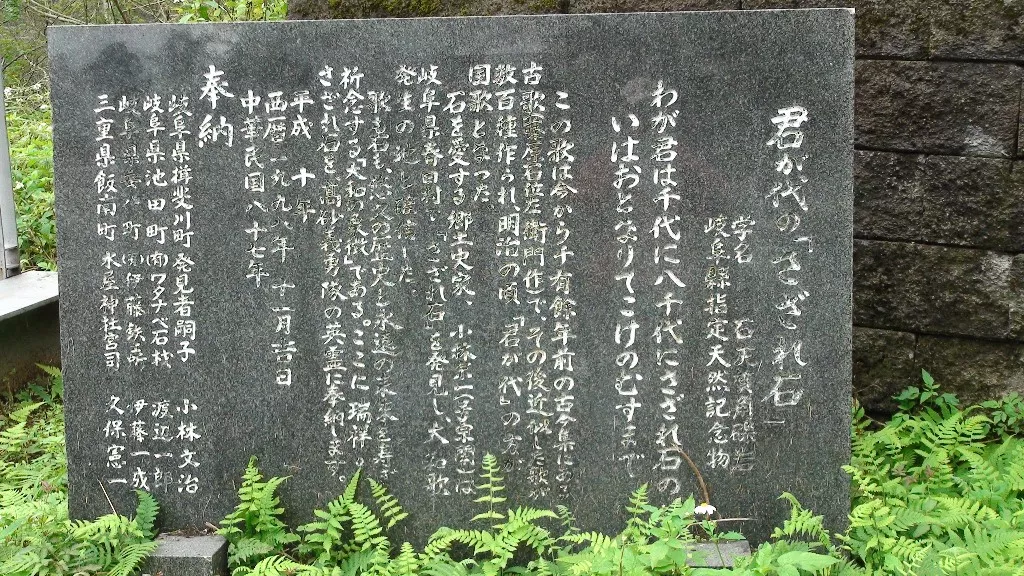 君が代の「さざれ石」
学名 石灰質角礫岩
岐阜縣指定天然記念物
わが君は千代に八千代にさざれ石の
いはおとなりてこけのむすまで
この歌は今から千有餘年前の古今集にあ
古歌
左衛門作で、その後近似した歌が
数百種作られ明治の頃「君が代」の
国歌となった
石を愛する郷土史家、小林宗一
は
岐阜県春日村で「さざれ石」を発見し大
歌
発生の地と確信した。
歌も石も
の歴史と永遠の未来を
祈念する大和の象徴である。ここに瑞祥の
さざれ石を高砂義勇隊の英霊に奉納します。
平成 十年
西暦一九九八年 十一月
日
中華民国八十七年
奉納
岐阜県揖斐川町 発見者嗣子 小林文治
岐阜県池田町 ㈲ワタナベ石材 渡辺一郎
岐阜県
町
伊藤鉄
伊藤一成
三重県飯南町 水屋神社宮司 久保憲一